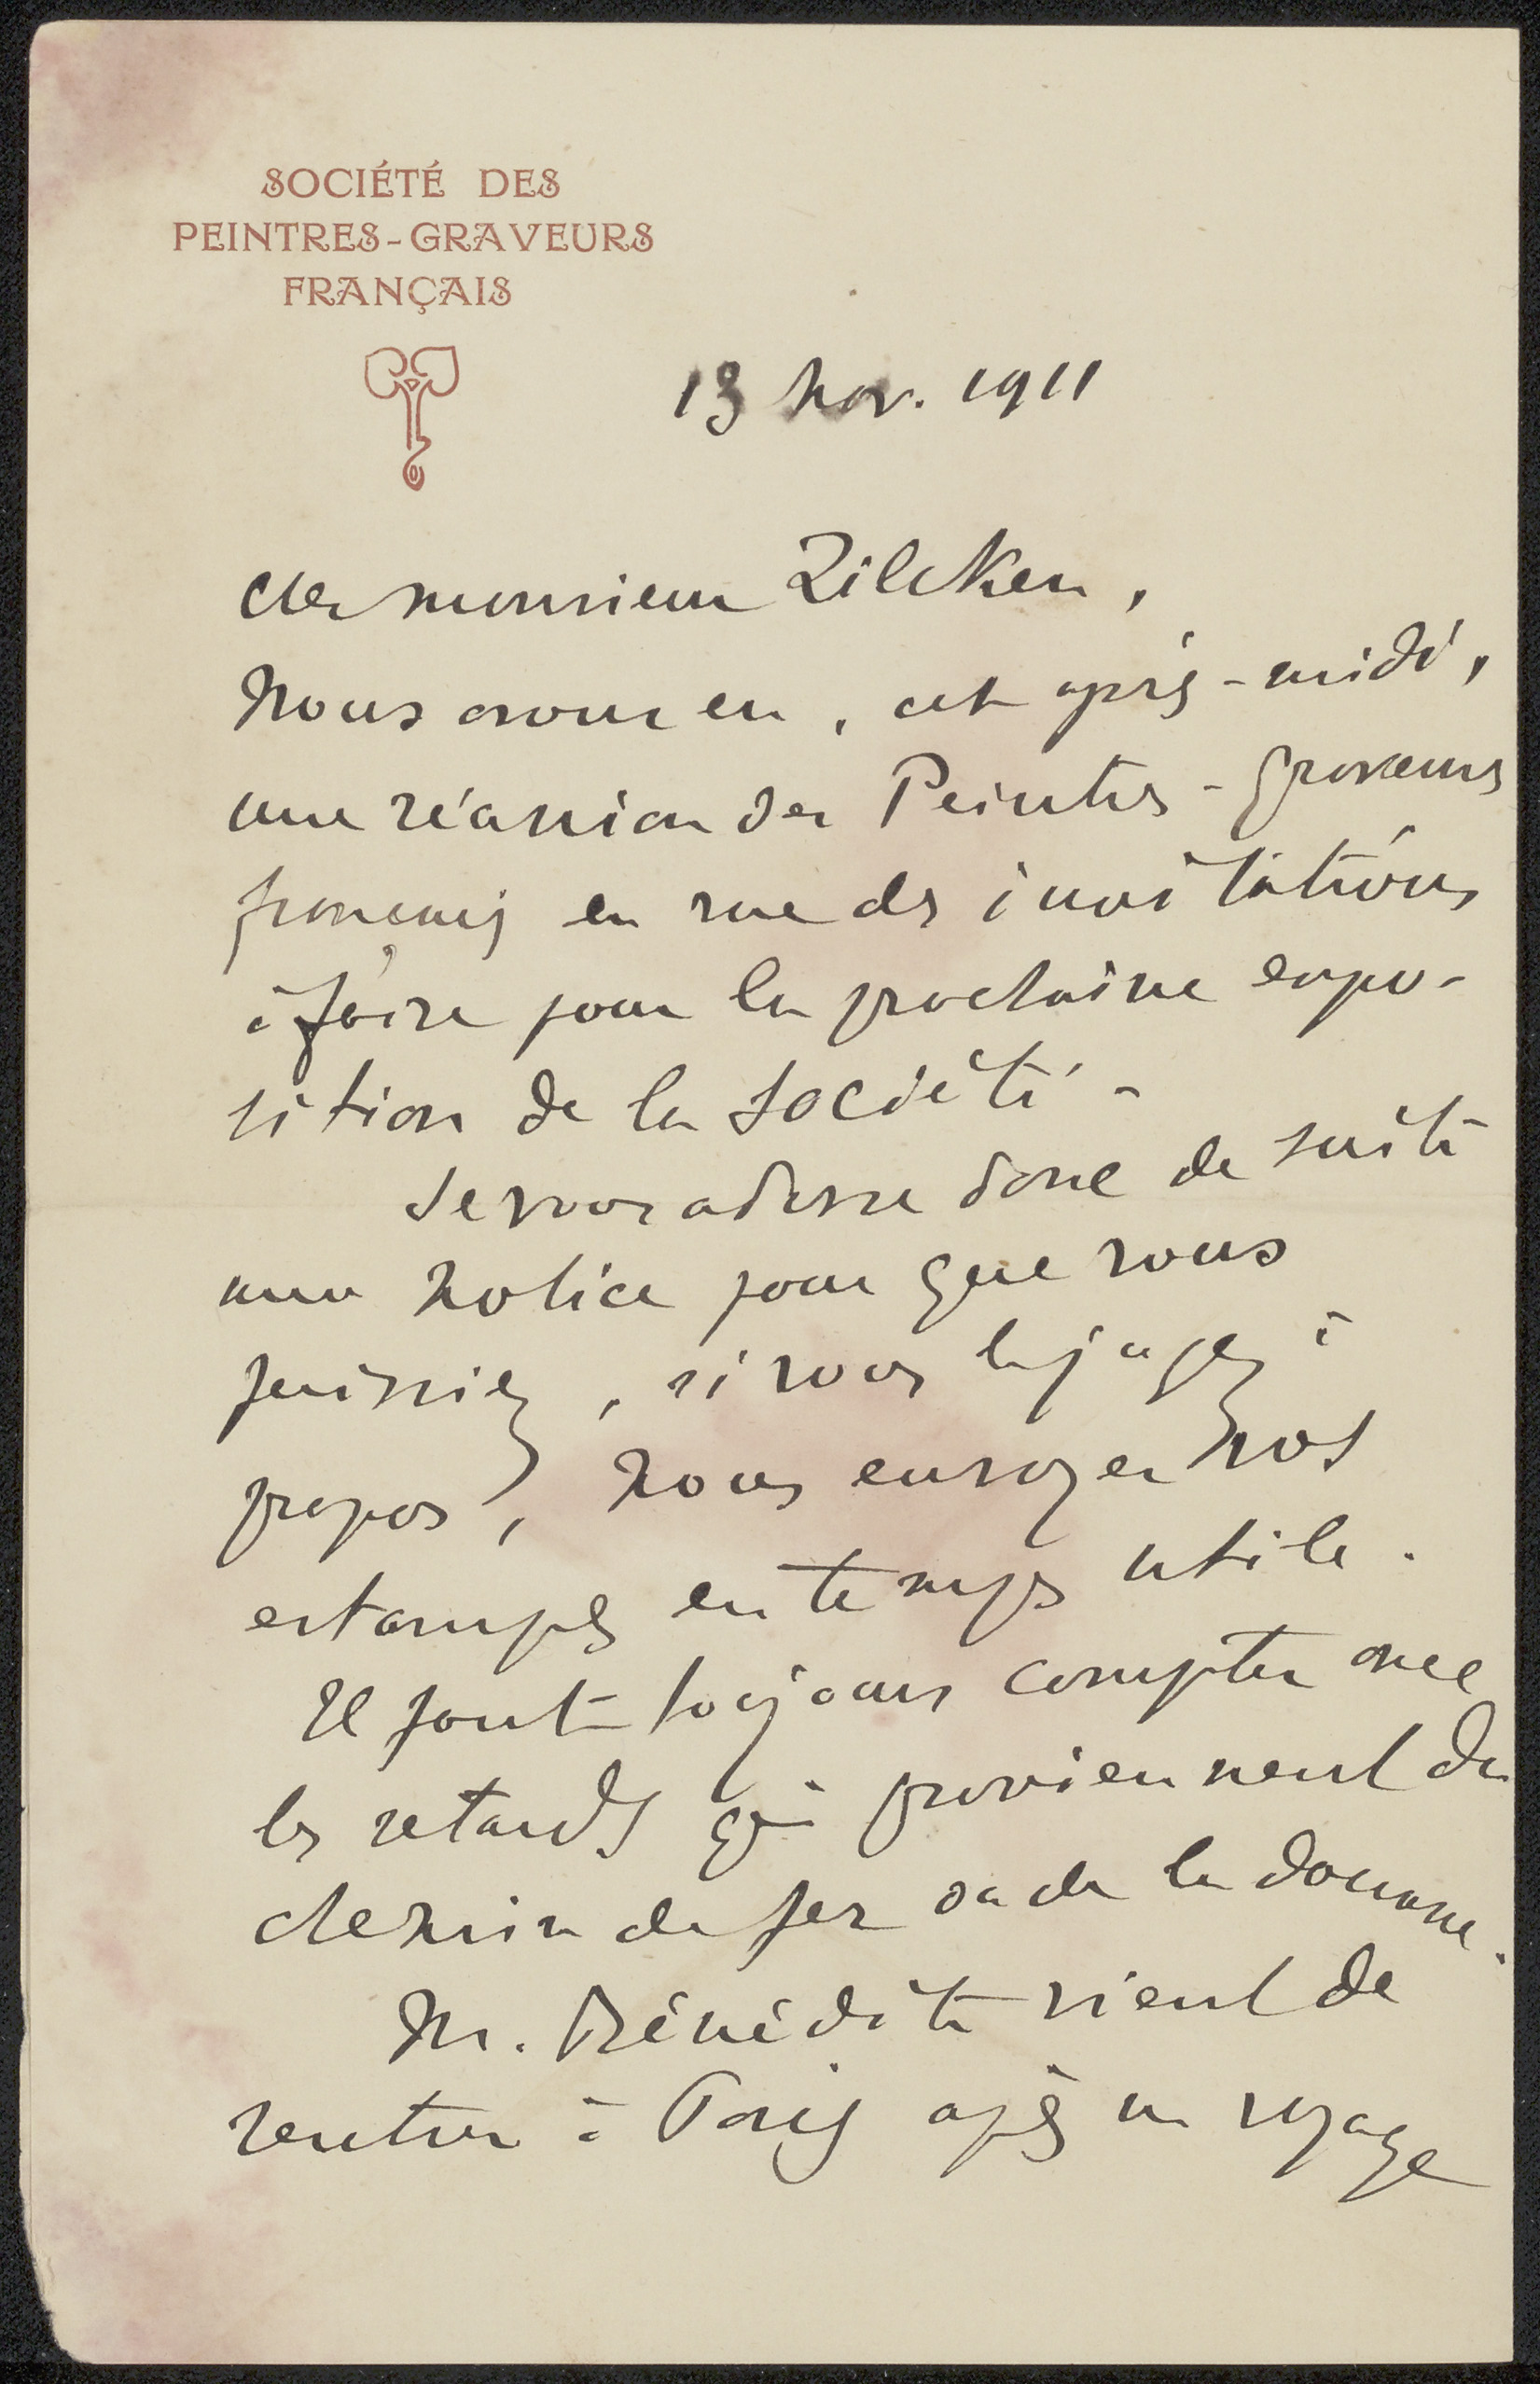 SOCIÉTÉ DES
PEINTRES-GRAVEURS
FRANÇAIS
13 nov. 1911
cher monsieur Zilcken,
Nous avons eu, cet après-midi,
une réunion des Peintres-graveurs
français en vue des invitations
à faire pour la prochaine expo-
sition de la Société -
Je vous adresse donc de suite
une notice pour que vous
puissiez, si vous le jugez à
propos, nous envoyer vos
estampes en temps utile.
Il faut toujours compter avec
les retards qui proviennent du
chemin de fer ou de la douane.
M. Bénédite vient de
rentrer à Paris après un voyage